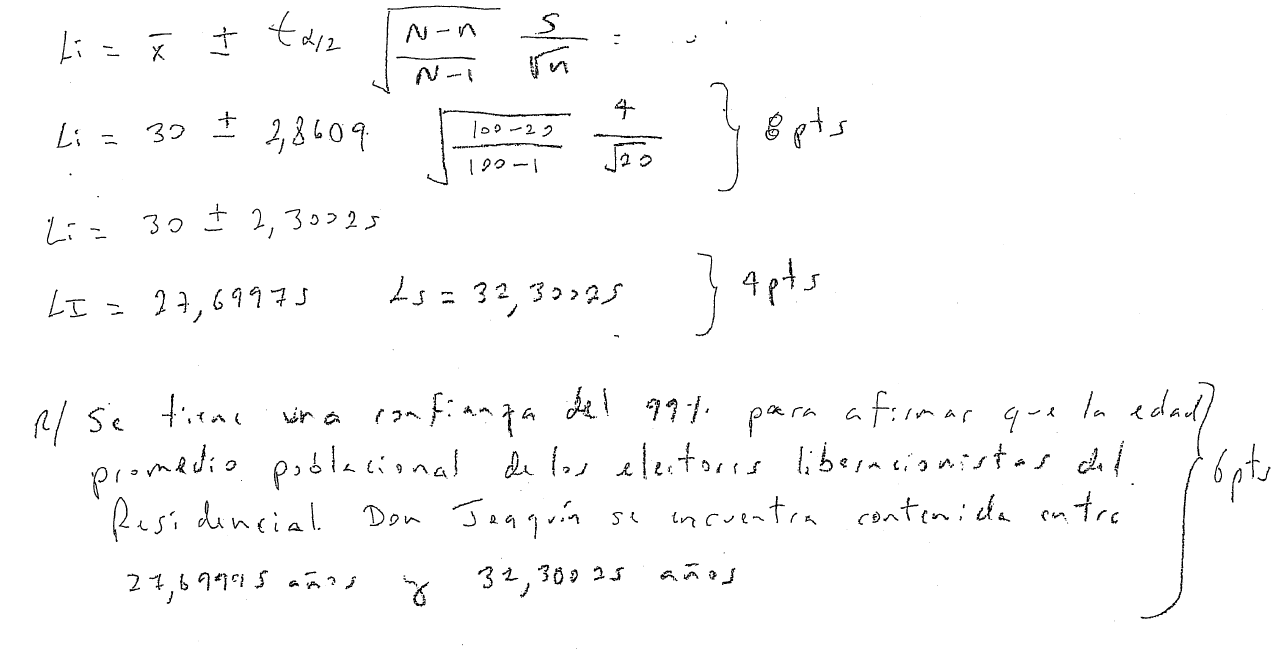 Li = x̄ ± tα/2 √((N-n)/(N-1)) S/√n =
Li = 30 ± 2,8609 √((100-20)/(100-1)) 4/√20 } 8 pts
Li = 30 ± 2,30025
LI = 27,69975 Ls = 32,30025 } 4 pts
R/ Se tiene una confianza del 99% para afirmar que la edad
promedio poblacional de los electores liberacionistas del
Residencial Don Joaquín se encuentra contenida entre } 6 pts
27,69975 años y 32,30025 años